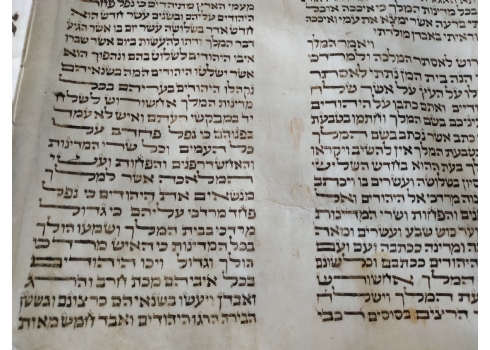 בכל מדינות המלך כי איככה
ברעה אשר ימצא את עמי ואיככה
וראיתי באבדן מולדתי
ויאמר המלך
לאסתר המלכה ולמרדכי
הנה בית המן נתתי לאסתר
תלו על העץ על אשר שלח
ואתם כתבו על היהודים
בעיניכם בשם המלך וחתמו בטבעת
כתב אשר נכתב בשם המלך
בטבעת המלך אין להשיב ויקראו
המלך בעת ההיא בחדש השלישי
סיון בשלושה ועשרים בו ויכתב
צוה מרדכי אל היהודים ואל
והפחות ושרי המדינות
כוש שבע ועשרים ומאה
ומדינה ככתבה ועם ועם
היהודים ככתבם וכלשונם
המלך אחשורש
המלך וישלח
הרצים בסוסים רכבי
מעמי הארץ מתיהדים כי נפל פחד
היהודים עליהם ובשנים עשר חדש הוא
חדש אדר בשלושה עשר יום בו אשר הגיע
דבר המלך ודתו להעשות ביום אשר שברו
איבי היהודים לשלוט בהם ונהפוך הוא
אשר ישלטו היהודים המה בשנאיהם
נקהלו היהודים בעריהם בכל
מדינות המלך אחשורוש לשלח
יד במבקשי רעתם ואיש לא עמד
בפניהם כי נפל פחדם על
כל העמים וכל שרי המדינות
והאחשדרפנים והפחות ועשי
המלאכה אשר למלך
מנשאים את היהודים כי נפל
פחד מרדכי עליהם כי גדול
מרדכי בבית המלך ושמעו הולך
בכל המדינות כי האיש מרדכי
הולך וגדול ויכו היהודים
בכל איביהם מכת חרב והרג
ואבדן ויעשו בשנאיהם כרצונם ובשושן
הבירה הרגו היהודים ואבד חמש מאות